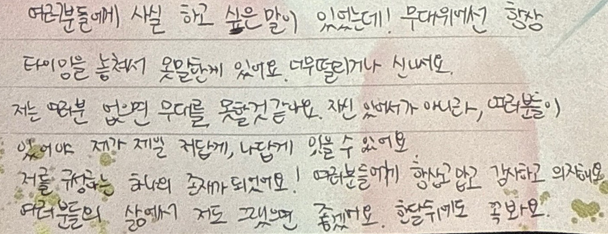 여러분들에게 사실 하고 싶은 말이 있었는데! 무대위에선 항상
타이밍을 놓쳐서 못말한게 있어요. 너무떨리거나 신나서요.
저는 여러분 없으면 무대를 못할것 같아요. 자신 있어서가 아니라, 여러분들이
있어야 제가 제일 저답게, 나답게 있을 수 있어요
저를 구성하는 하나의 존재가 되었어요! 여러분들에게 항상 고맙고 감사하고 의지해요
여러분들의 삶에서 저도 그랬으면 좋겠어요. 한달뒤에도 꼭봐요.